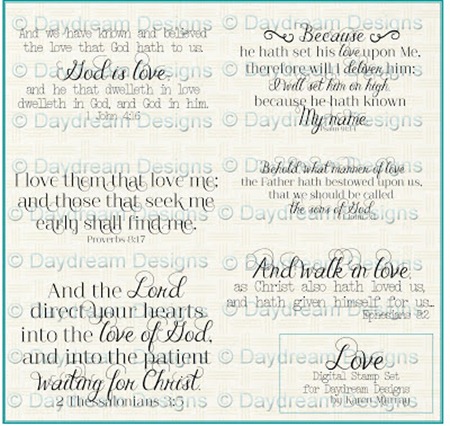 And we have known and believed
the love that God hath to us.
God is love,
and he that dwelleth in love
dwelleth in God, and God in him.
1 John 4:16
I love them that love me;
and those that seek me
early shall find me.
Proverbs 8:17
And the Lord
direct your hearts
into the love of God,
and into the patient
waiting for Christ.
2 Thessalonians 3:5
Because
he hath set his love upon Me,
therefore will I deliver him:
I will set him on high,
because he hath known
My name.
Psalm 91:14
Behold what manner of love
the Father hath bestowed upon us,
that we should be called
the sons of God.
And walk in love,
as Christ also hath loved us,
and hath given himself for us...
Ephesians 5:2
Love
Digital Stamp Set
for Daydream Designs
by Karen
© Daydream Designs